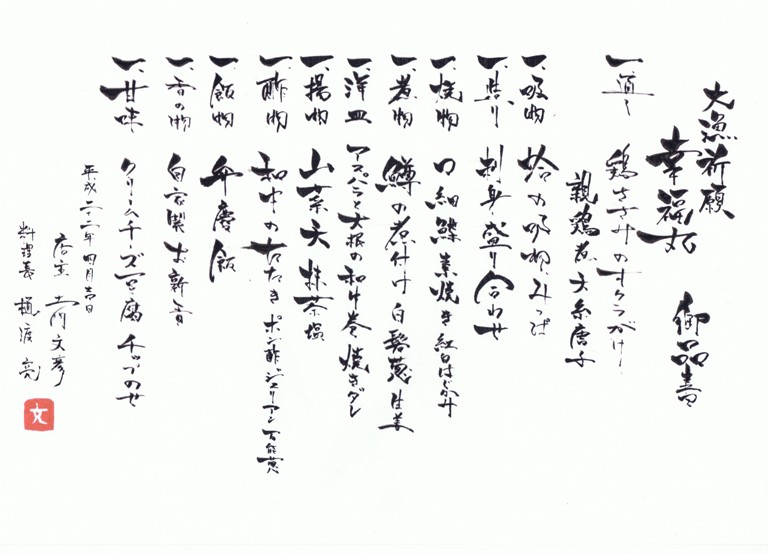 大漁祈願
幸福丸 御品書
一、通し 鶏ささみのオクラがけ
親鶏煮 天糸唐子
一、吸物 蛤の吸物 みつば
一、造り 刺身盛り合わせ
一、焼物 口細鰈素焼き 紅白はじかみ
一、煮物 鱒の煮付け 白髪葱 生姜
一、洋皿 アスパラと大根の和け巻 焼きダレ
一、揚物 山菜天 抹茶塩
一、酢物 和牛のたたき ポン酢ジュリアン 万能葱
一、飯物 弁慶飯
一、香の物 自家製お新香
一、甘味 クリームチーズ豆腐 チップのせ
平成二十二年四月吉日
店主 文彦
料理長 樋渡 亮
文